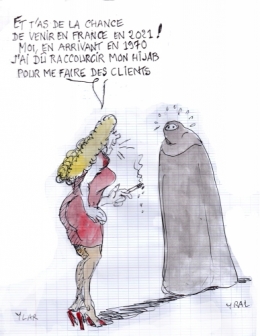 ET T'AS DE LA CHANCE
DE VENIR EN FRANCE EN 2021!
MOI, EN ARRIVANT EN 1970
J'AI DÛ RACCOURCIR MON HIJAB
POUR ME FAIRE DES CLIENTS
YLAR
YRAL